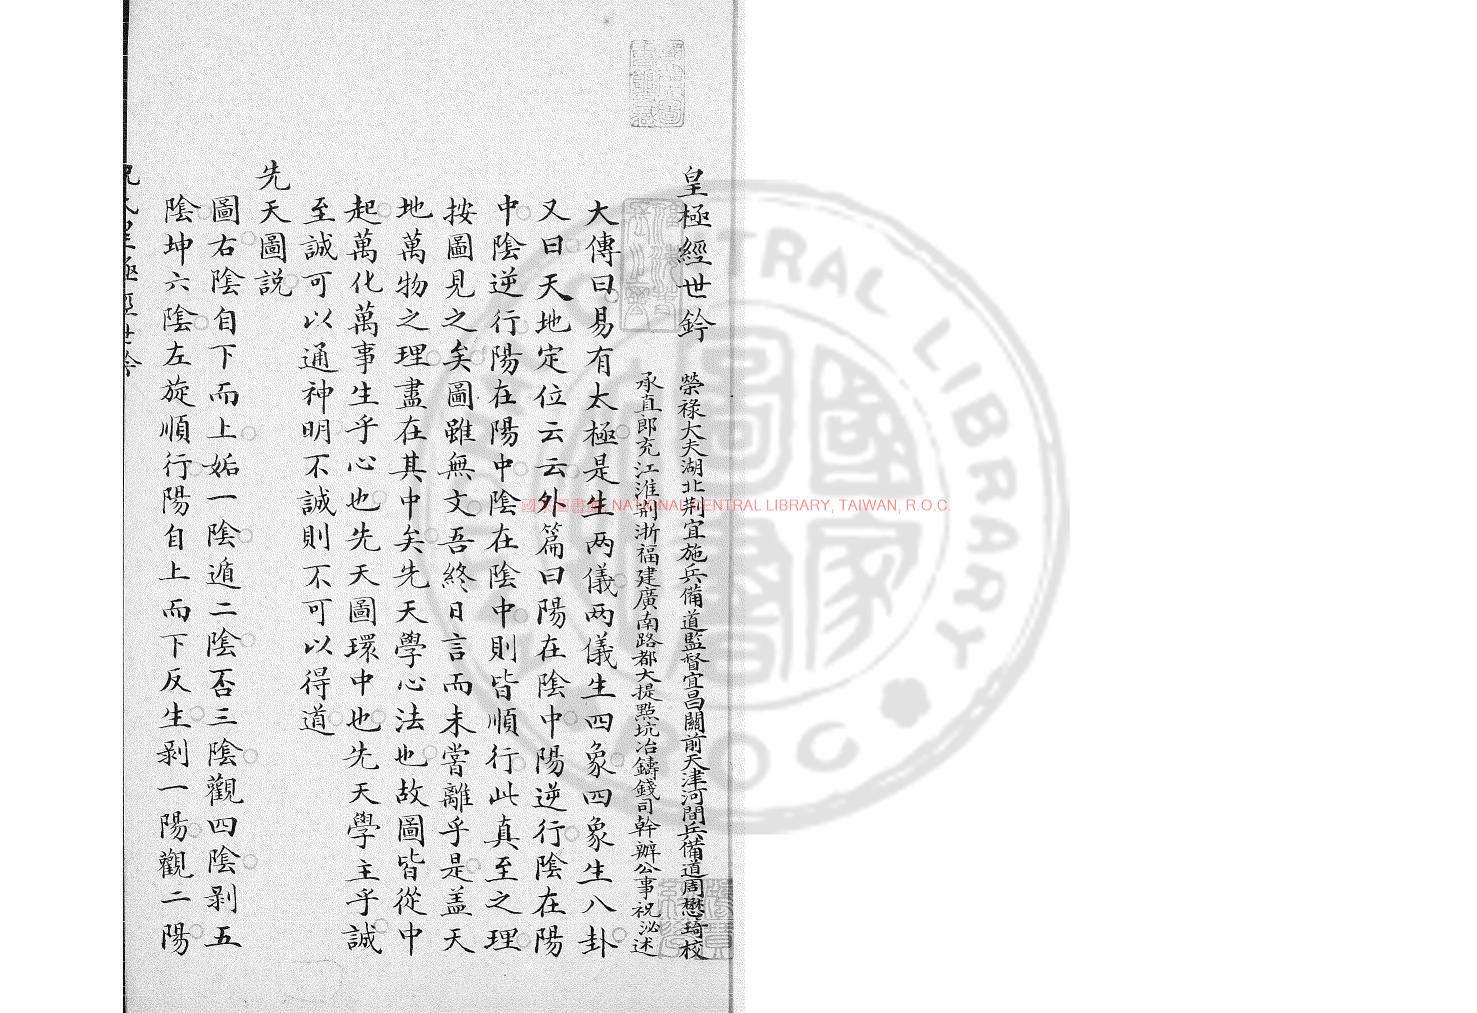 皇極經世鈐
榮祿大夫湖北荆宜施兵備道監督宜昌關前天津河間兵備道周懋琦校
承直郎充江淮荆浙福建廣南路都大提㸃坑冶鑄錢司幹辦公事祝泌述
大傳曰易有太極是生两儀两儀生四象四象生八卦
又曰天地定位云云外篇曰陽在陰中陽逆行陰在陽
中陰逆行陽在陽中陰在陰中則皆順行此真至之理
按圖見之矣圖雖無文吾終日言而未嘗離乎是盖天
地萬物之理盡在其中矣先天學心法也故圖皆從中
起萬化萬事生乎心也先天圖環中也先天學主乎誠
至誠可以通神明不誠則不可以得道
先天圖説
圖右陰自下而上姤一陰遁二陰否三陰觀四陰剥五
陰坤六陰左旋順行陽自上而下反生剥一陽觀二陽
祝氏皇極經世鈐
國家圖書館 NATIONAL CENTRAL LIBRARY, TAIWAN, R.O.C.
NATIONAL CENTRAL LIBRARY R.O.C
國家圖書